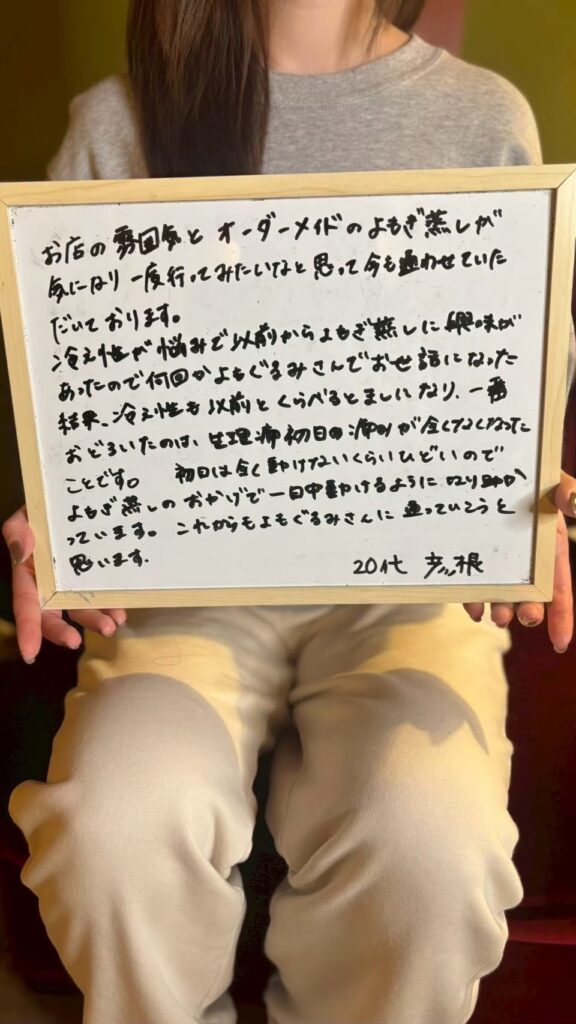 お店の雰囲気とオーダーメイドのよもぎ蒸しが
気になり一度行ってみたいなと思って今も通わせていた
だいております。
冷え性が悩みで以前からよもぎ蒸しに興味が
あったので何回かよもぐるみさんでお世話になった
結果、冷え性も以前とくらべるとましになり、一番
おどろいたのは、生理痛初日の痛みが全くなくなった
ことです。 初日は全く動けないくらいひどいので
よもぎ蒸しのおかげで一日中動けるようになり助か
っています。これからもよもぐるみさんに通っていこうと
思います.
20代 彦根